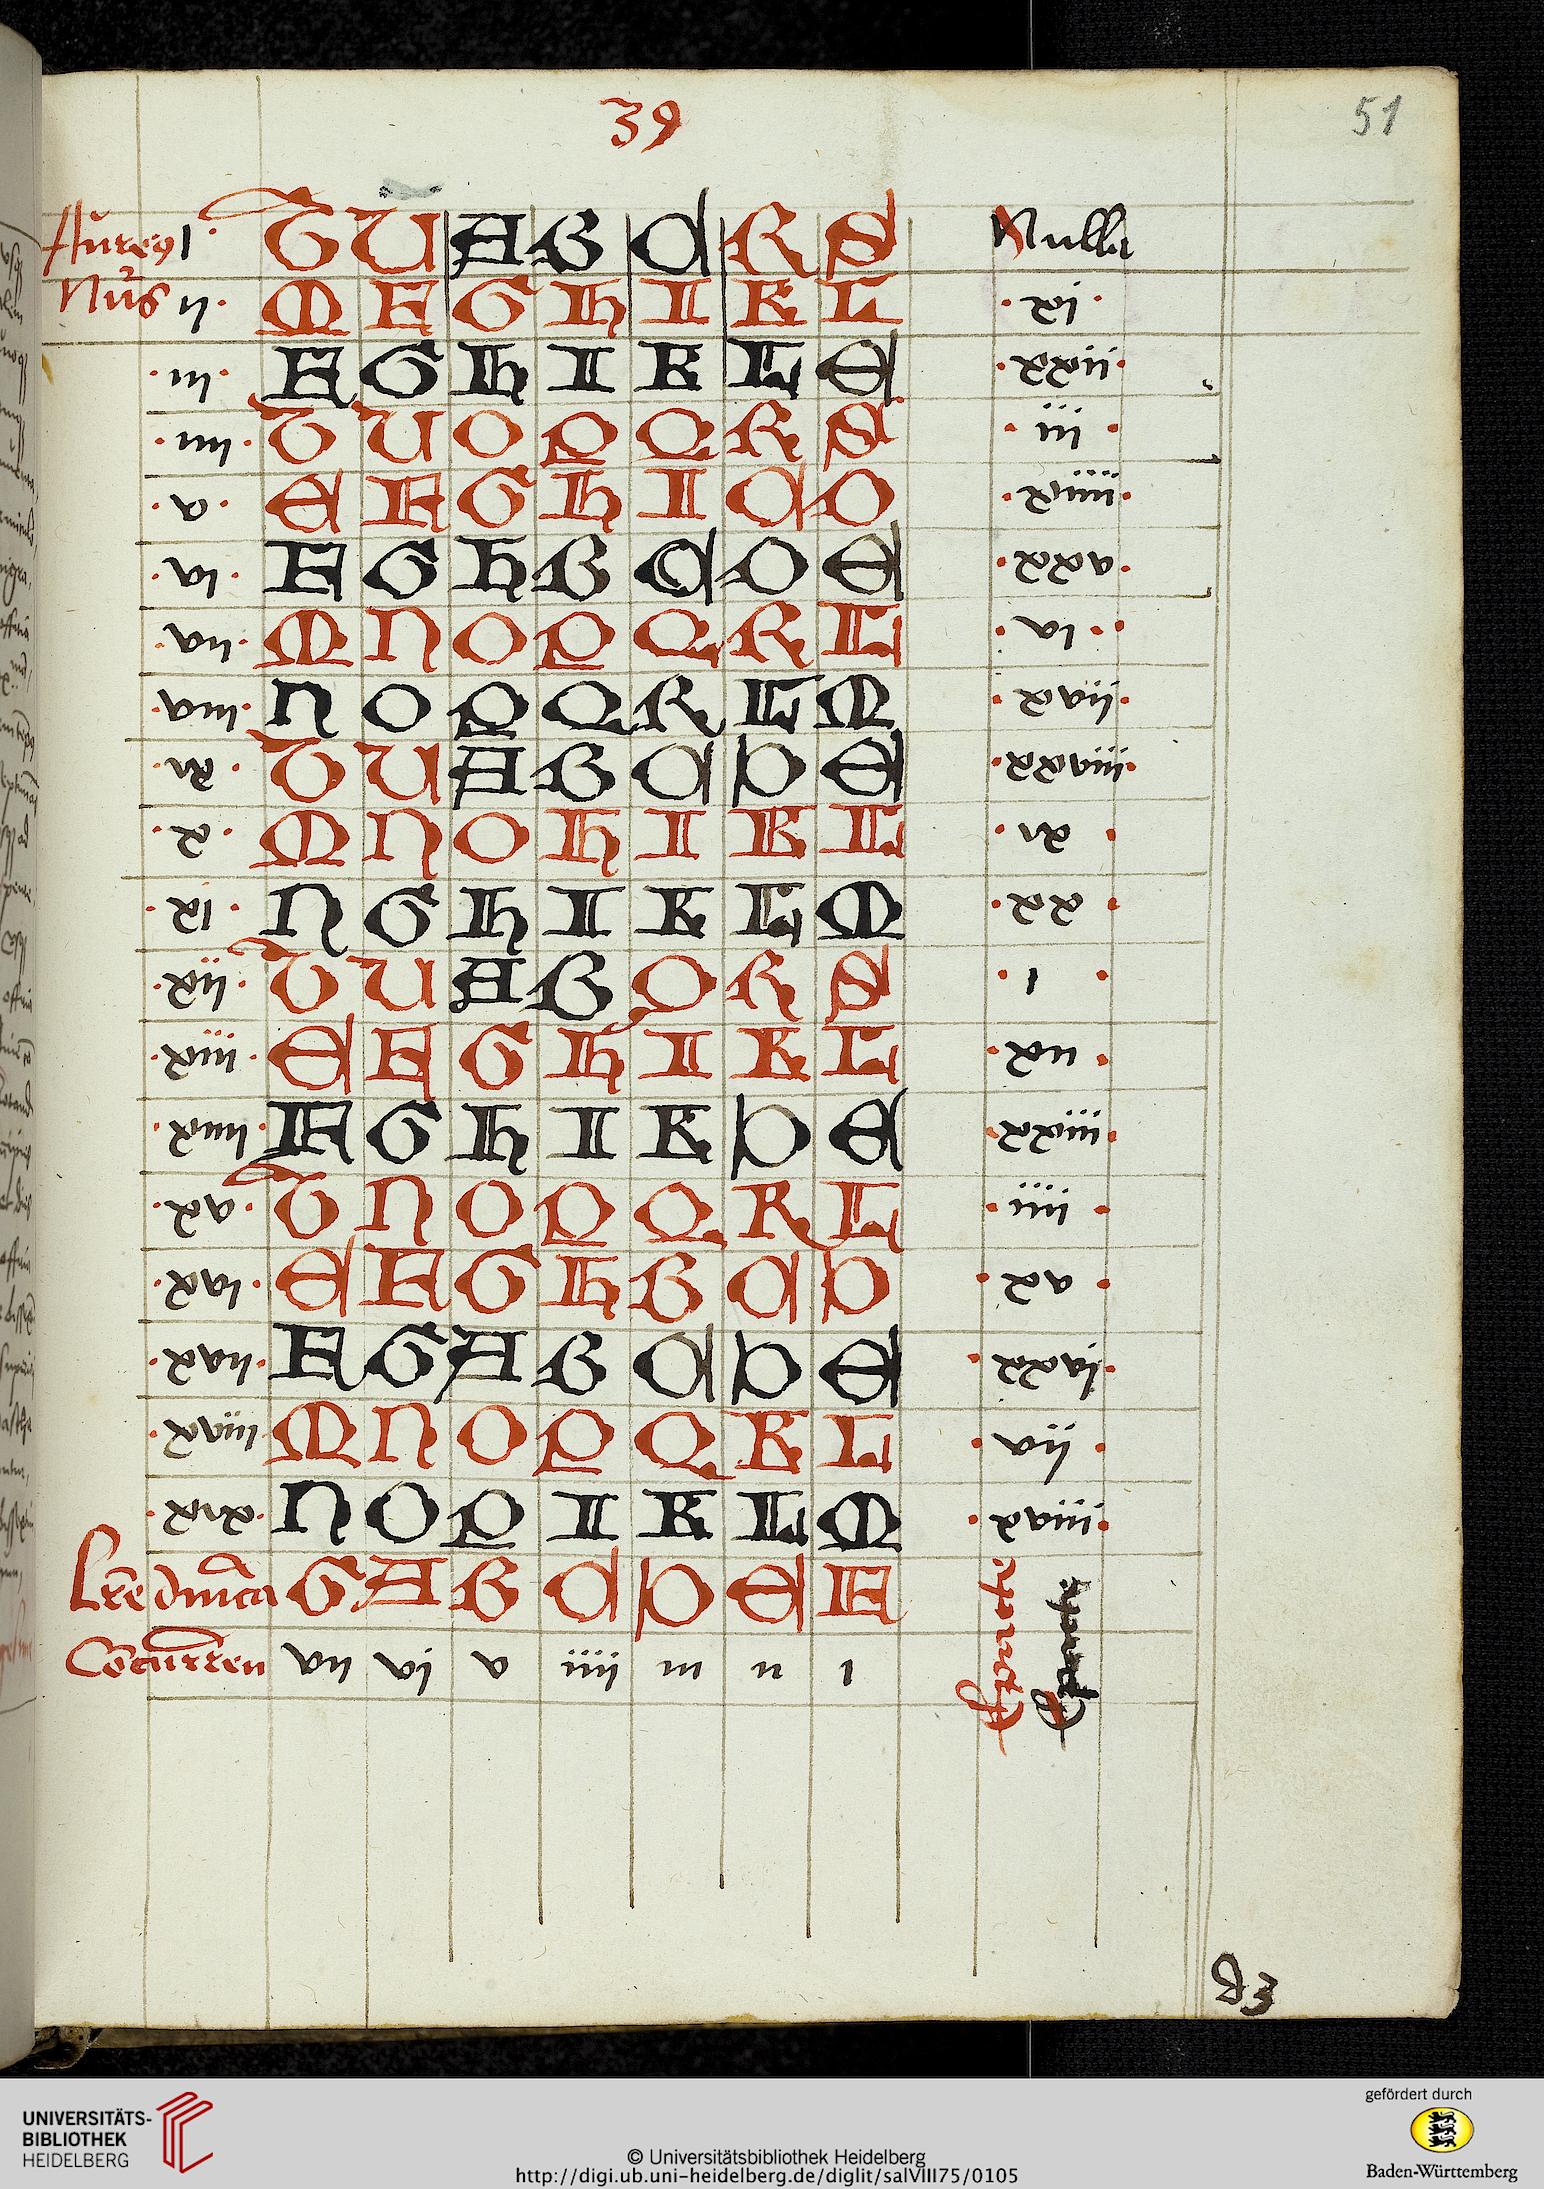 39
51
Aureus i T U A B C R S Nulla
Nūs ii M F G H I K L xi
iii F G H I K L E xxii
iiii T U O P Q R S iii
v E F G H I C D xiiii
vi F G H B C D E xxv
vii M N O P Q R L vi
viii N O P Q R L M xvii
ix T U A B C D E xxviii
x M N O H I K L ix
xi N G H I K L M xx
xii T U A B Q R S i
xiii E F G H I K L xii
xiiii F G H I K D E xxiii
xv T N O P Q R L iiii
xvi E F G H B C D xv
xvii F G A B C D E xxvi
xviii M N O P Q K L vii
xix N O P I K L M xviii
Lrē dnica G A B C D E F
Cōcurren vii vi v iiii iii ii i
Epacte
Epacte
d3
UNIVERSITÄTS-
BIBLIOTHEK
HEIDELBERG
© Universitätsbibliothek Heidelberg
http://digi.ub.uni-heidelberg.de/diglit/salVIII75/0105
gefördert durch
Baden-Württemberg